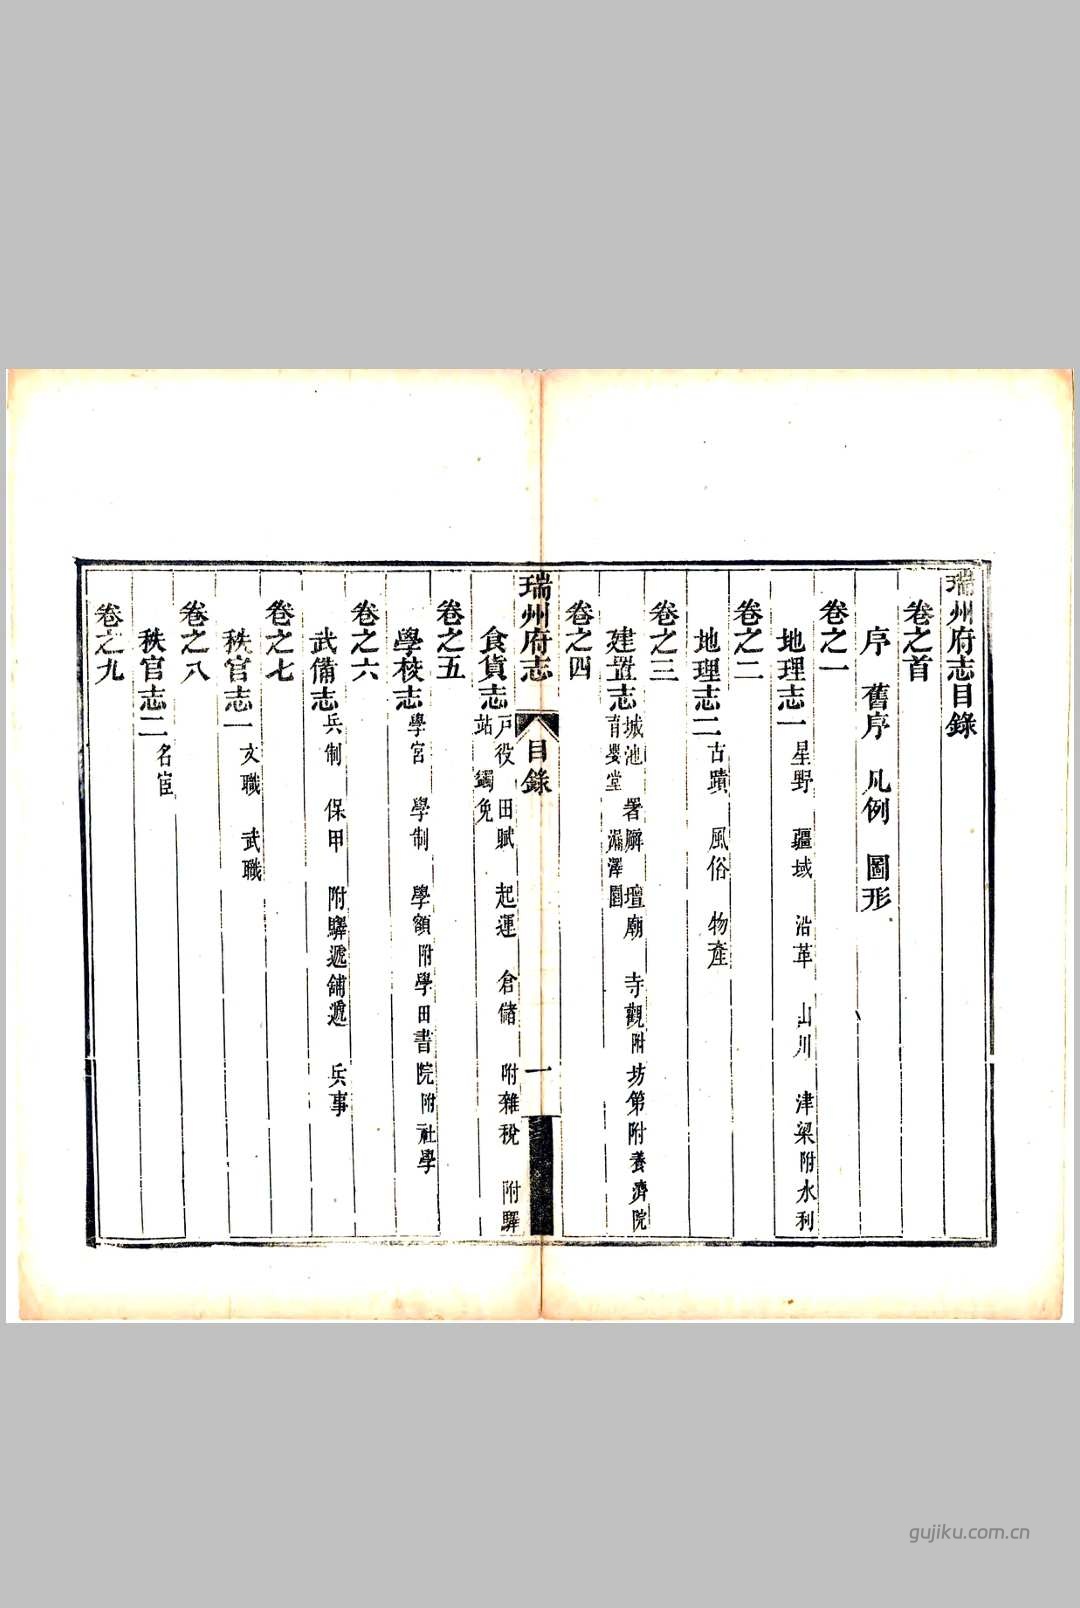 瑞州府志目錄
卷之首
序 舊序 凡例 圖形
卷之一
地理志一 星野 疆域 沿革 山川 津梁附水利
卷之二
地理志二 古蹟 風俗 物產
卷之三
建置志 城池 署廨 壇廟 寺觀附 坊第附養濟院
育嬰堂 漏澤園
卷之四
瑞州府志 目錄 一
食貨志 戸役 田賦 起運 倉儲 附雜稅 附驛
站 蠲免
卷之五
學校志 學宮 學制 學額附學田書院附社學
卷之六
武備志 兵制 保甲 附驛遞舖遞 兵事
卷之七
秩官志一 文職 武職
卷之八
秩官志二 名宦
卷之九
gujiku.com.cn